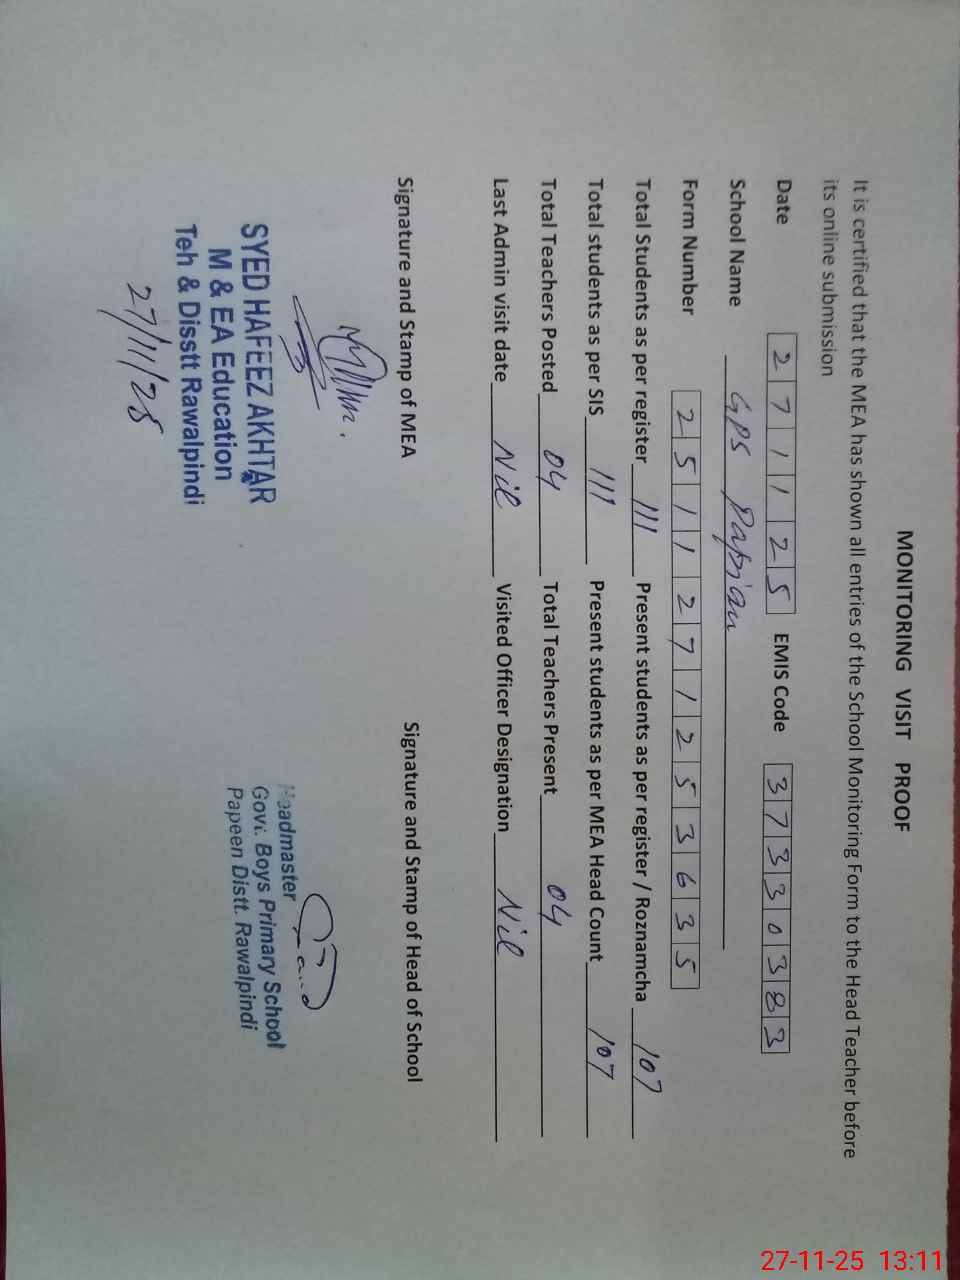 MONITORING VISIT PROOF
It is certified that the MEA has shown all entries of the School Monitoring Form to the Head Teacher before
its online submission
Date 2 7 1 1 2 5 EMIS Code 3 7 3 3 0 3 8 3
School Name GPS Papian
Form Number 2 5 1 1 2 7 1 2 5 3 6 3 5
Total Students as per register 111 Present students as per register / Roznamcha 107
Total students as per SIS 111 Present students as per MEA Head Count 107
Total Teachers Posted 04 Total Teachers Present 04
Last Admin visit date Nil Visited Officer Designation Nil
Signature and Stamp of MEA Signature and Stamp of Head of School
SYED HAFEEZ AKHTAR
M & EA Education
Teh & Disstt Rawalpindi
27/11/25
Headmaster
Govt. Boys Primary School
Papeen Distt. Rawalpindi
27-11-25 13:11